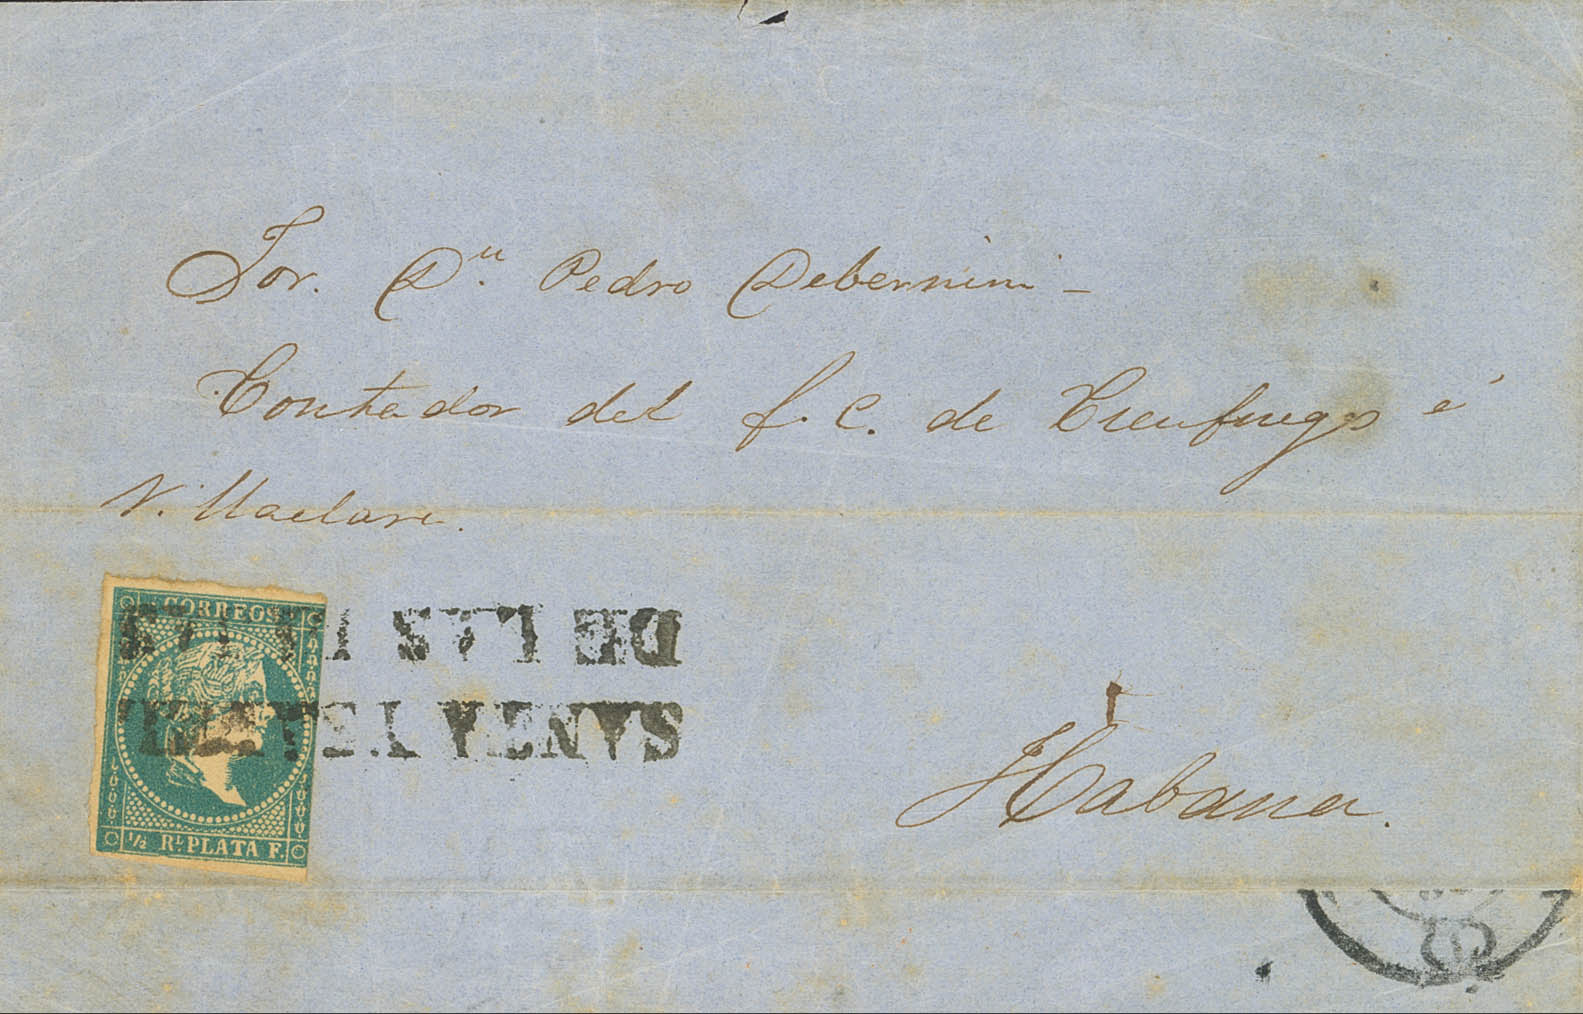 Sor. Dn. Pedro Debernini -
Contador del f. C. de Cienfuegos é
V. Maclara.
CORREOS
½ RL PLATA F.
SANTA YSABEL
DE LAS LAJAS
Habana.